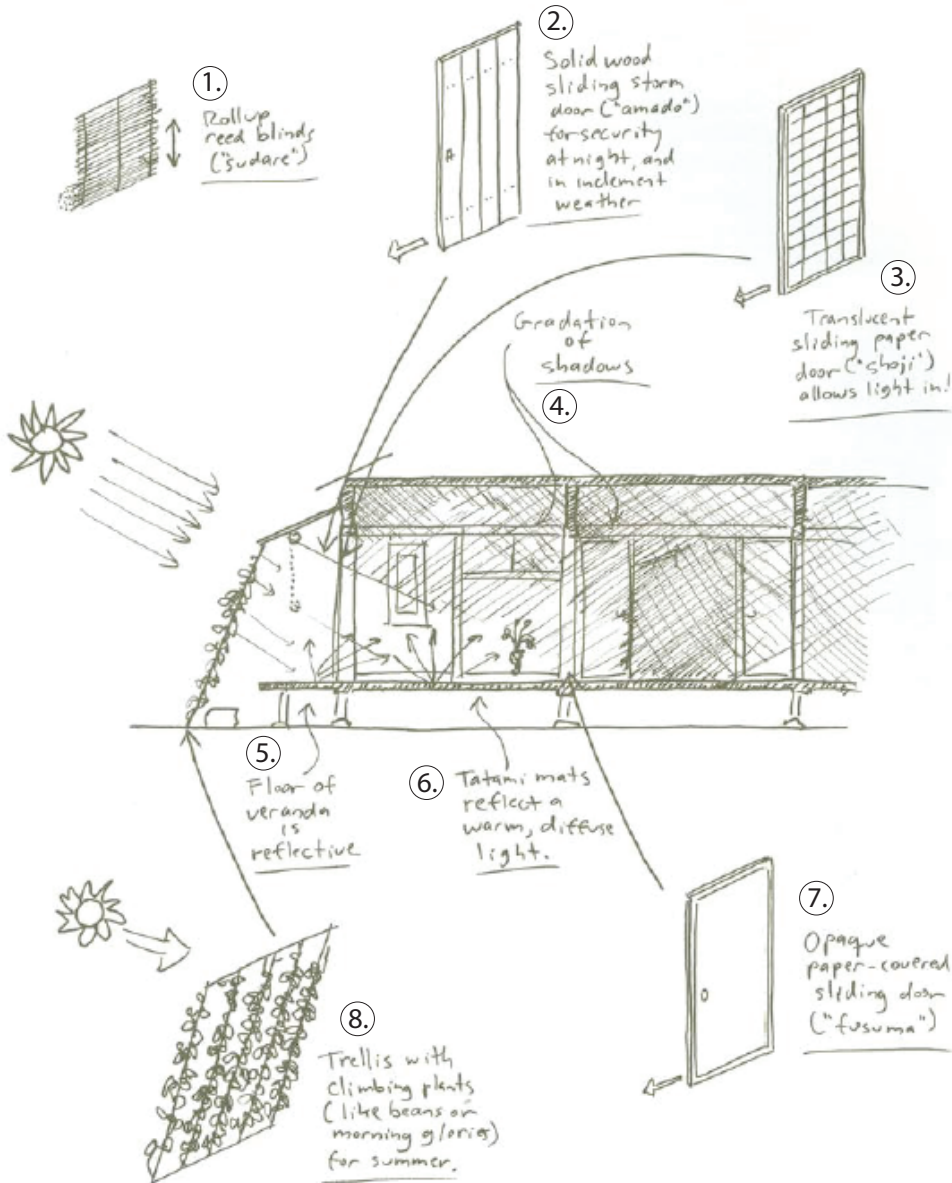 1.
Rollup
reed blinds
("sudare")
2.
Solid wood
sliding storm
door ("amado")
for security
at night, and
in inclement
weather
3.
Translucent
sliding paper
door ("shoji")
allows light in!
Gradation
of
shadows
4.
5.
Floor of
veranda
is
reflective
6.
Tatami mats
reflect a
warm, diffuse
light.
7.
Opaque
paper-covered
sliding door
("fusuma")
8.
Trellis with
climbing plants
(like beans or
morning glories)
for summer.